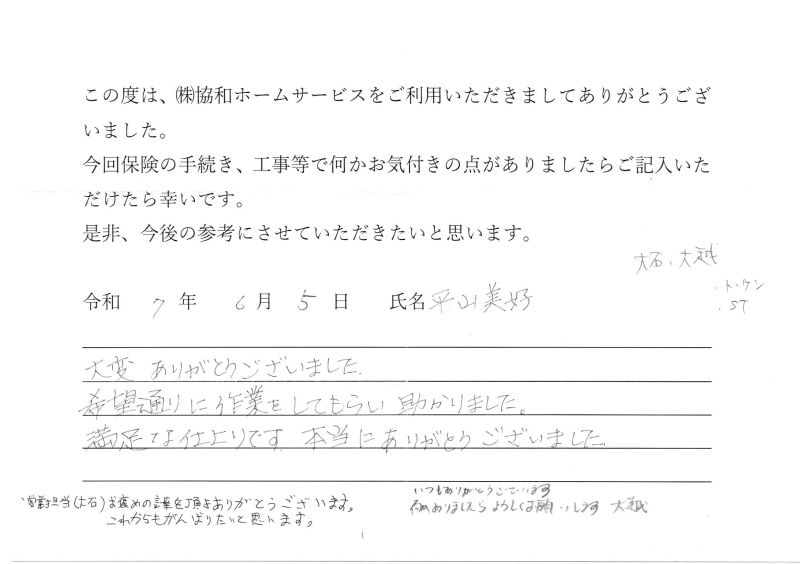 この度は、㈱協和ホームサービスをご利用いただきましてありがとうござ
いました。
今回保険の手続き、工事等で何かお気付きの点がありましたらご記入いた
だけたら幸いです。
是非、今後の参考にさせていただきたいと思います。
大石、大越
・トーケン
・ST
令和 7 年 6 月 5 日 氏名 平山美好
大変 ありがとうございました。
希望通りに作業をしてもらい助かりました。
満足な仕上りです 本当にありがとうございました。
営業担当(大石)お褒めの言葉を頂きありがとうございます。
これからもがんばりたいと思います。
いつもありがとうございます
ありましたら よろしくお願いします 大越